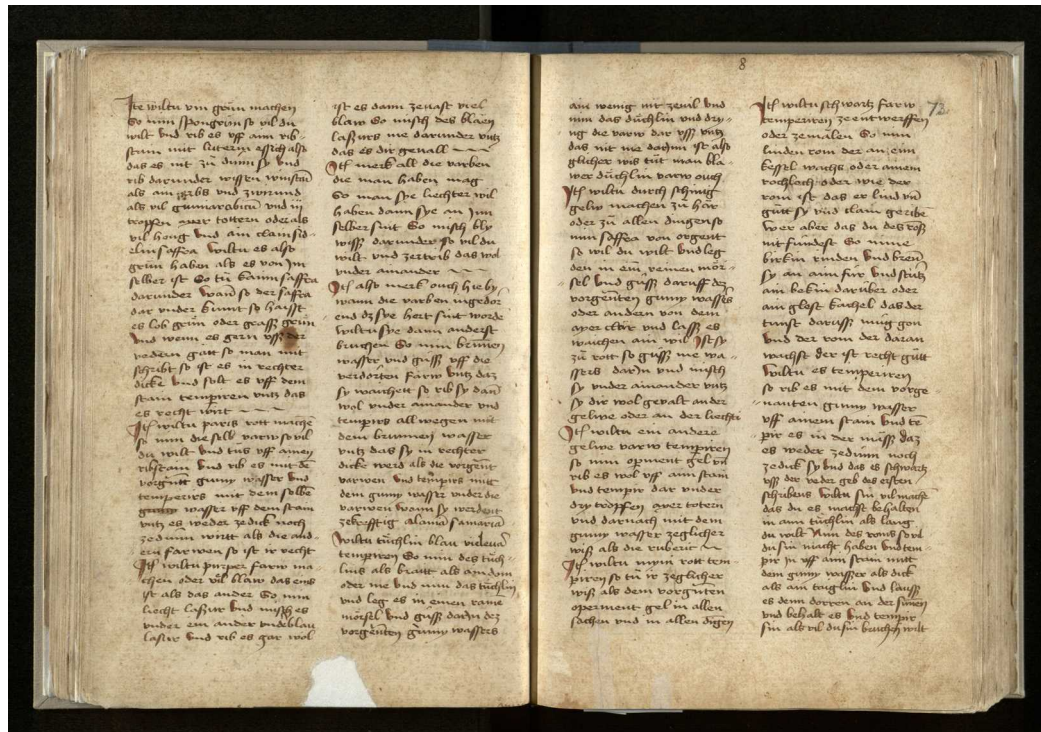 Ite wiltu vin grün machen
So nim spongrün so vil du
wilt vnd rib es vff aim rib
stain mit luterm essich also
das es nit zü dünn sy vnd
rib darunder wissen winstain
als ain erbs vnd zwirund
als vil gumarabicu vnd iij
tropffen ayer tottern oder als
vil hong vnd ain clain
saffra wiltu es also
grün haben als es von Im
selber ist So tü kainn saffra
darunder wann so der saffra
dar vnder kumt so haist
es lob grün oder graß grün
vnd wenn es gern vß der
vedern gatt so man mit
schribt so ist es in rechter
dicke vnd solt es vff dem
stain tempreren vntz das
es recht wirt
Itē wiltu paris rott mache
so nim die selb varw so vil
du wilt vnd tüs vff ainen
ribstain vnd rib es mit dē
vorgntt gumy wasser vnd
temperirs mit dem selbē
wasser vff dem stain
vntz es weder ze dick noch
ze dünn wirtt als die and
ern farwen so ist ir recht
Itē wiltu purper farw ma
chen oder vil blaw das eins
ist als das ander So nim
liecht lasur vnd misch es
vnder ein ander vnd
lasur vnd rib es gar wol
ist es dann ze vast viel
blaw So misch des blaen
lasurs me darunder vntz
das es dir genall
Itē merk all die varben
die man haben mag
So man sye liechter wil
haben dann sye an Im
selber sint So misch bly
wiß darunder so vil du
wilt vnd zertrib das wol
vnder ainander
Itē also merk ouch hie by
wann die varben
end dz sye hert sint worde
wiltu sye dann anderst
bruchen So nim brünen
wasser vnd güß vff die
verdorten farw vntz daz
sy waichett so rib sy dan
wol vnder ainander vnd
tempirs all wegen mit
dem brunnen wasser
vntz das sy in rechter
dicke werd als die vorgntt
varwen vnd tempirs mitt
dem gumy wasser vnder die
varwen wann sy werdent
ze krefftig
Wiltu tüchlin blau
tempreren So nim des tüch
lins als braitt als ain
oder me vnd nim das tüchlin
vnd leg es in einen raine
mörsel vnd güß darin dez
vorgenten gumy wassers
8
72
ain wenig nit ze vil vnd
nim das düchlin vnd dry
ng die varw dar vß vntz
das nit me dar Inn ist also
glicher wis tüt man bla
wer düchlin varw ouch
Itē wiltu durch schinig
gelw machen zü hör
oder zü allen dingen so
nim saffra von orgent
so vil du wilt vnd leg
den in ein reinen mör
sel vnd güß daruff dez
vorgenten gumy wassers
oder andern von dem
ayer clor vnd laß es
waichen ain wil Ist sy
zü rott so güß me wa
ssers darin vnd misch
sy vnder ainander vntz
sy dir wol gevalt ander
gelwe oder an der liechti
Itē wiltu ein andere
gelwe varw tempiren
so nim opment gel vn
rib es wol vff aim stain
vnd tempir dar vnder
dry tropffen ayer totern
vnd darnach mit dem
gumy wasser zeglicher
wiß als die ruberic
Itē wiltu nym rott tem
piren so tü ir zeglicher
wiß als dem vorgnten
operment gel in allen
sachen vnd in allen digen
Itē wiltu schwartz farw
temperiren ze entwerffen
oder ze malen So nim
linden rom der an eim
kessel wachs oder ainem
rochlach oder wie der
rom ist das er lind vn
gutt sy vnd clain geribē
Wer aber das du des roß
nit fündest So nime
birkin rinden vnd bren
sy an aim für vnd stürtz
ain bekin darüber oder
ain glest kachel das der
tunst darusß müg gon
vnd der rom der daran
wachst der ist recht gütt
Wiltu es temperiren
so rib es mit dem vorge
nanten gumy wasser
vff ainem stain vnd te
pir es in der mäß daz
es weder ze dünn noch
ze dick sy vnd das es schwartz
vß der veder geb des ersten
schribens Wiltu sin vil mache
das du es macht behalten
in aim tüchlin als lang
du wilt Nim des roms so vil
du sin macht haben vnd tem
pir in vff aim stain mitt
dem gumy wasser als dick
als ain taiglin vnd lauß
es denn dorren an der sunen
vnd behalt es vnd tempir
sin als vil du sin bruchen wilt